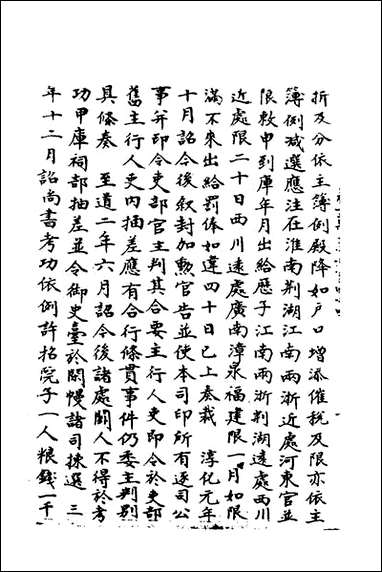 折及分依主簿例殿降如戶口增添催稅及限亦依主
簿例減選應注在淮南荆湖江南兩浙近處河東官並
限敕申到庫年月出給歷子江南兩浙荆湖遠處西川
近處限二十日西川遠處廣南漳泉福建限一月如限
滿不來出給罰俸如違四十日已上奏裁　淳化元年
十月詔今後叙封加勲官告並使本司印所有逐司公
事并即令吏部官主判其合要主行人吏即令於吏部
舊主行人吏内抽差應有合行條貫事件仍委主判別
具條奏　至道二年六月詔今後諸處闕人不得於考
功甲庫祠部抽差並令御史臺於閑慢諸司揀選　三
年十二月詔尚書考功依例許招院子一人粮錢一千